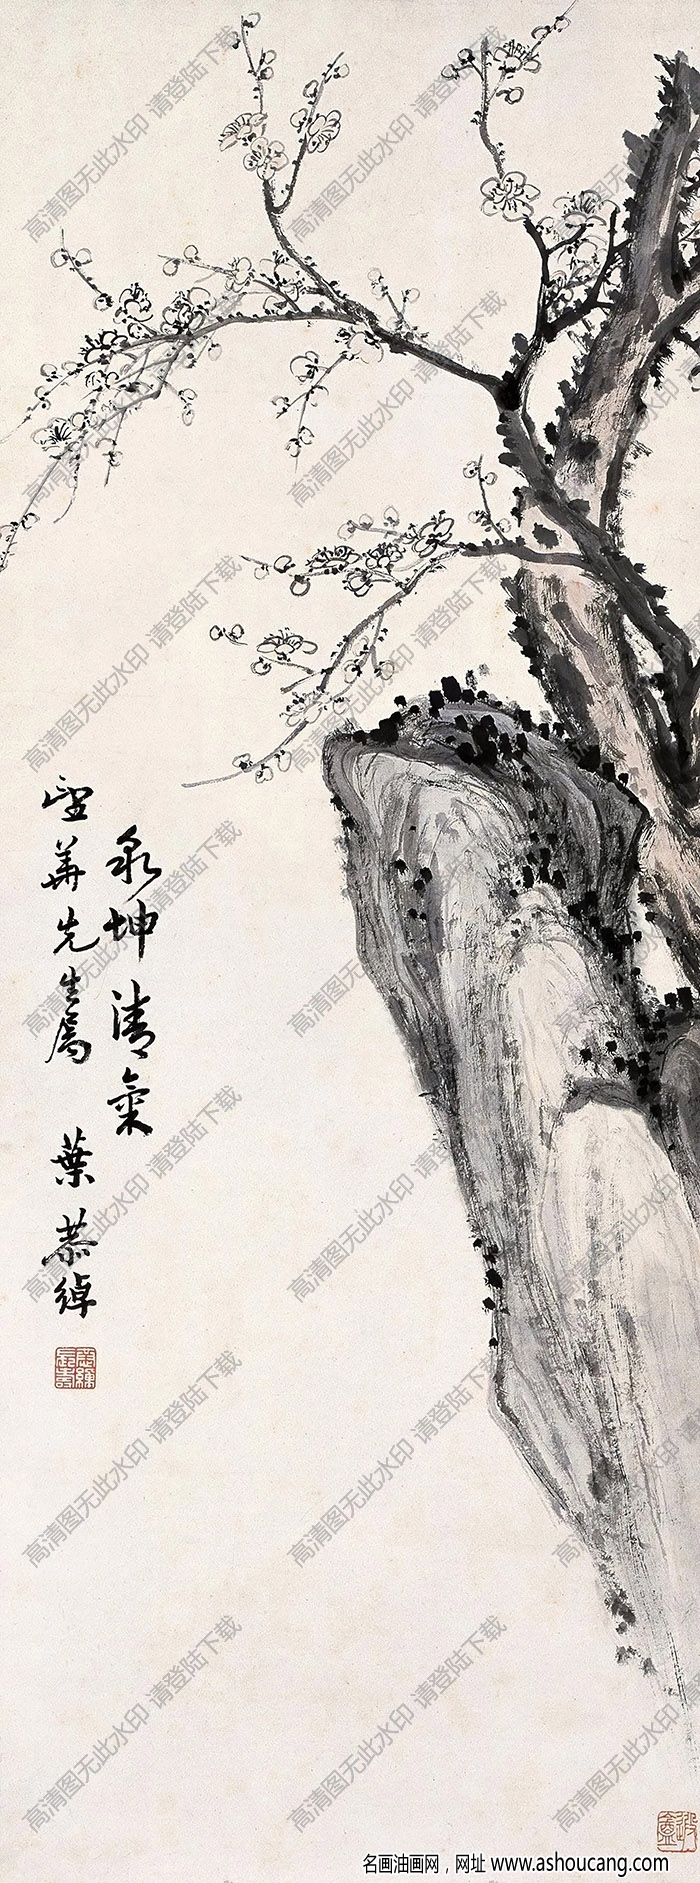 乾坤清氣
聖華先生屬 葉恭綽
恭綽長壽
遐盦
高清图无此水印 请登陆下载
名画油画网，网址 www.ashoucang.com